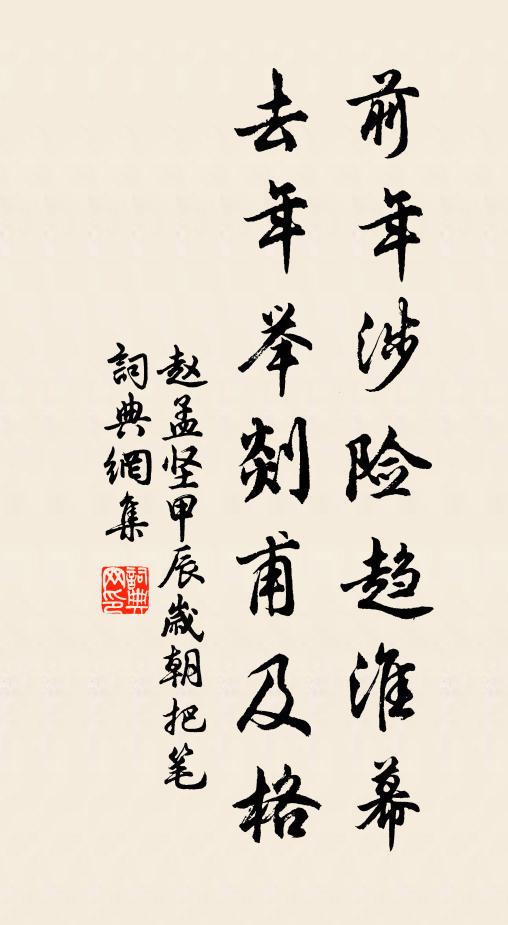 前年涉险趋淮幕
去年举剡甫及格
赵孟坚甲辰岁朝把笔
詞典網集
詞典
网印